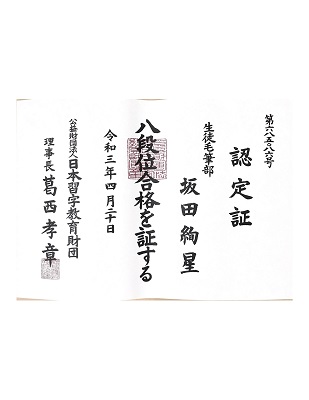 第六八五〇八六号
認定証
生徒毛筆部
坂田絢星
八段位合格を証する
令和三年四月二十日
公益財団法人日本習字教育財団
理事長 葛西孝章